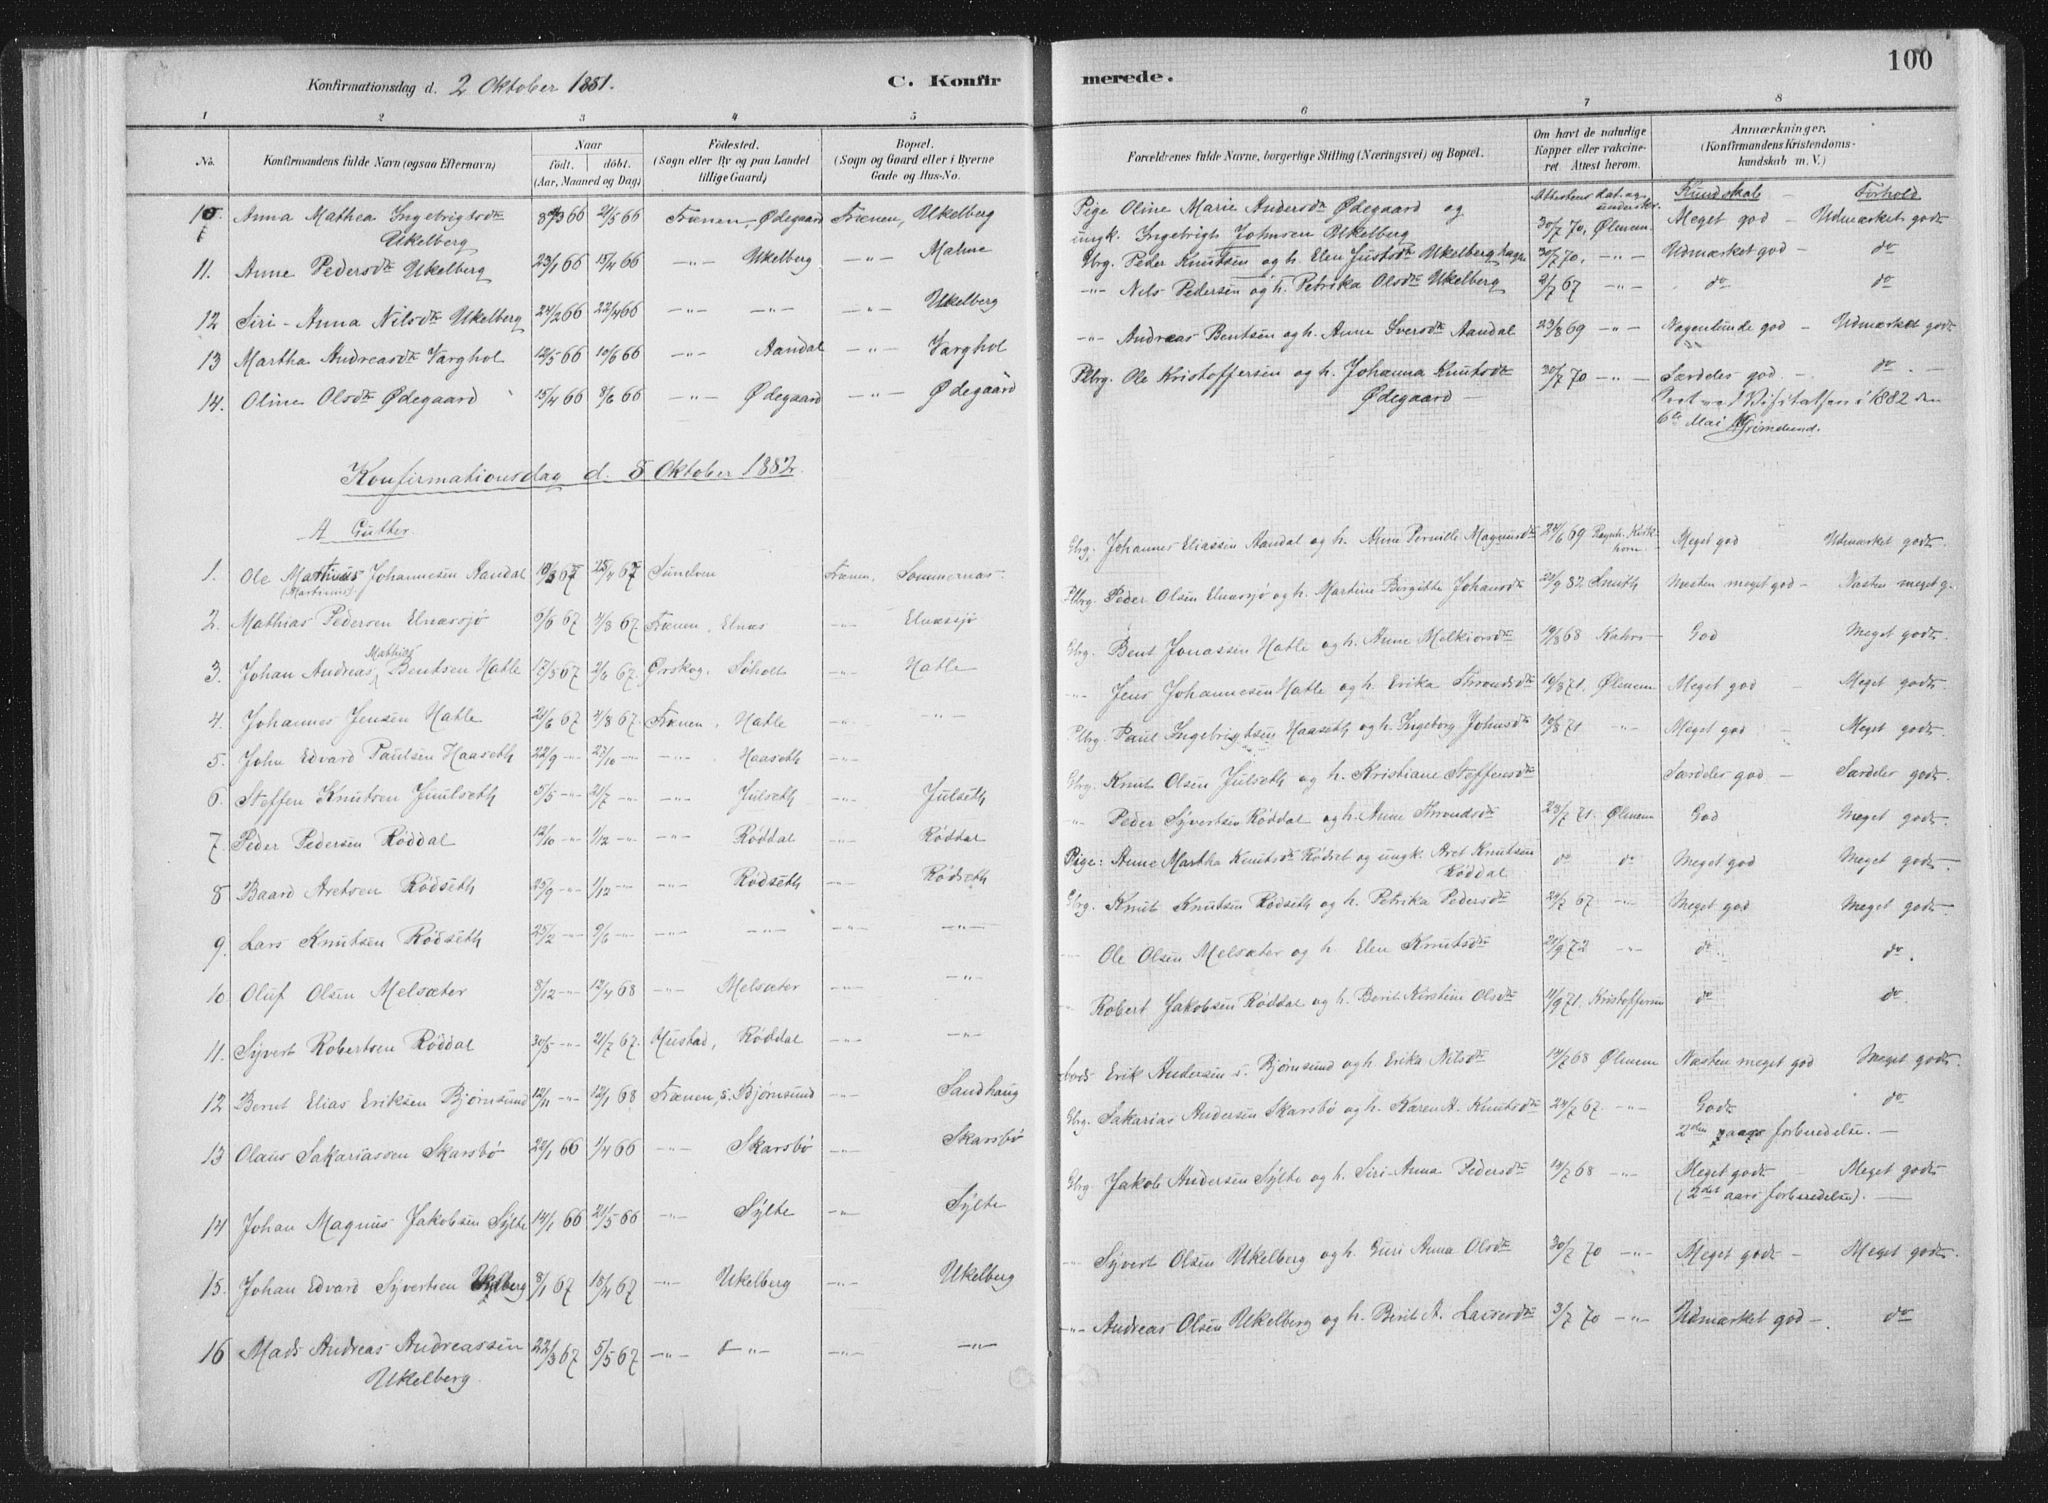 Konfirmationsdag d. 2 Oktober 1881.
C. Konfir
1 2 3 4 5
No. Konfirmandens fulde Navn (ogsaa Efternavn) Naar født. døbt. (Aar, Maaned og Dag) Fødested. (Sogn eller By og paa Landet tillige Gaard) Bopæl. (Sogn og Gaard eller i Byerne Gade og Hus-No.
10. Anna Mathea Ingebrigtsdtr 8/3 66 21/5 66 Frænen, Ødegaard Frænen, Ukelberg
Ukelberg
11. Anne Pedersdtr Ukelberg 23/1 66 15/4 66 -"- Ukelberg -"- Malme
12 Siri-Anna Nilsdtr Ukelberg 24/2 66 22/4 66 -"- -"- -"- Ukelberg
13 Martha Andreasdtr Varghol 12/5 66 10/6 66 -"- Aandal -"- Varghol
14. Oline Olsdtr Ødegaard 15/4 66 8/6 66 -"- Ødegaard -"- Ødegaard
Konfirmationsdag d. 8 Oktober 1882.
A Gutter
1. Ole Martinus Johannesen Aandal 10/3 67 28/4 67 Sundven Frænen, Sommernæs
(Martinus)
2. Mathias Pedersen Elnæssjø 9/6 67 4/8 67 Frænen, Elnæs -"- Elnæssjø
Mathias
3. Johan Andreas Bentsen Hatle 17/5 67 2/6 67. Ørskog, Søholt -"- Hatle
4. Johannes Jensen Hatle 21/6 67 4/8 67. Frænen, Hatle -"- -"-
5. John Edvard Paulsen Haaseth 22/9 -"- 27/10 -"- -"- Haaseth -"-
6. Steffen Knutsen Juulseth 5/5 -"- 21/7 -"- -"- Julseth -"- Julseth
7. Peder Pedersen Røddal 12/10 -"- 1/12 -"- -"- Røddal -"- Røddal
8 Baard Aretsen Rødseth 25/9 -"- 1/12 -"- -"- Rødseth -"- Rødseth
9. Lars Knutsen Rødseth 25/2 -"- 9/6 -"- -"- -"- -"- -"-
10 Oluf Olsen Melsæter 8/12 -"- 12/4 68 -"- Melsæter -"-
11. Syvert Robertsen Røddal 30/5 -"- 21/7 67. Hustad, Røddal -"- -"-
12 Bernt Elias Eriksen Bjørnsund 12/11 -"- 12/1 68 Frænen, s. Bjørnsund -"- Sandhaug
13 Olaus Sakariassen Skarsbø 22/1 66 1/4 66 -"- Skarsbø -"- Skarsbø
14 Johan Magnus Jakobsen Sylte 14/1 66 21/5 66 -"- Sylte -"- Sylte
15. Johan Edvard Syvertsen Ukelberg 8/1 67 18/4 67 -"- Ukelberg -"- Ukelberg
16 Mads Andreas Andreassen 22/3 67 5/5 67 -"- -"- -"- -"-
Ukelberg.
merede.
100
6 7 8
Forældrenes fulde Navne, borgerlige Stilling (Næringsvei) og Bopæl. Om havt de naturlige Kopper eller vakcineret. Attest herom. Anmærkninger. (Konfirmandens Kristendomskundskab m. V.)
Attestens dat. og underskr. Kundskab - Forhold
Pige Oline Marie Andersdtr Ødegaard og 30/7 70, Ølmem. Meget god - Udmærket godt
ungk. Ingebrigt Johnsen Ukelberg
Gbrg. Peder Knutsen og h. Elen Justsdtr Ukelberghagen 30/7 70, -"- Udmærket god - do
-"- Nils Pedersen og h. Petrika Olsdtr Ukelberg 2/7 67 -"- do do
-"- Andreas Bentsen og h. Anne Iversdtr Aandal 23/8 69 -"- Nogenlunde god - Udmærket godt
Plbrg. Ole Kristoffersen og h. Johanna Knutsdtr 30/7 70 -"- Særdeles god - do. -
Ødegaard - Visitatsen i 1882 den
6te Mai Grimelund.
Gbrg. Johannes Eliassen Aandal og h. Anne Pernille Magnusdtr 24/6 69 Meget god Udmærket godt.
Plbrg. Peder Olsen Elnæssjø og h. Martine Birgitte Johansdtr 23/9 82 Smith Næsten meget god - Næsten meget g.
Gbrg. Bent Jonassen Hatle og h. Anne Melkiorsdtr 19/8 68 Kahrs God Meget godt.
-"- Jens Johannesen Hatle og h. Erika Trondsdtr 10/8 71. Ølmem Meget god - Meget godt.
Plbrg. Paul Ingebrigtsen Haaseth og h. Ingeborg Johnsdtr 10/8 71 -"- Meget god - Meget godt.
Gbrg. Knut Olsen Julseth og h. Kristiane Steffensdtr Særdeles god - Særdeles godt.
" Peder Syvertsen Røddal og h. Anne Trondsdtr 23/7 71. Ølmem God Meget godt.
Pige: Anne Martha Knutsdtr Rødset og ungk. Aret Knutsen do do Meget god Meget godt.
Røddal
Gbrg. Knut Knutsen Rødseth og h. Petrika Pedersdtr 29/7 67 -"- Meget god Meget godt.
-"- Ole Olsen Melsæter og h. Elen Knutsdtr 21/9 72 -"- do. do.
" Robert Jakobsen Røddal og h. Berit Kirstine Olsdtr 11/9 71. Kristoffersen do do.
Erik Andersen s. Bjørnsund og h. Erika Nilsdtr 14/7 68 Ølmem Næsten meget god Meget godt.
Gbrg. Sakarias Andersen Skarsbø og h. Karen A. Knutsdtr 24/7 67. -"- Godt do
2den aars forberedelse. -
Gbrg. Jakob Andersen Sylte og h. Siri-Anna Pedersdtr 14/7 68 -"- Meget godt - Meget godt
(2det aars forberedelse). -
" Syvert Olsen Ukelberg og h. Guri Anna Olsdtr 30/7 70 -"- Meget godt - Meget godt.
-"- Andreas Olsen Ukelberg og h. Berit A. Lassesdtr 3/7 70 -"- Udmærket god - do